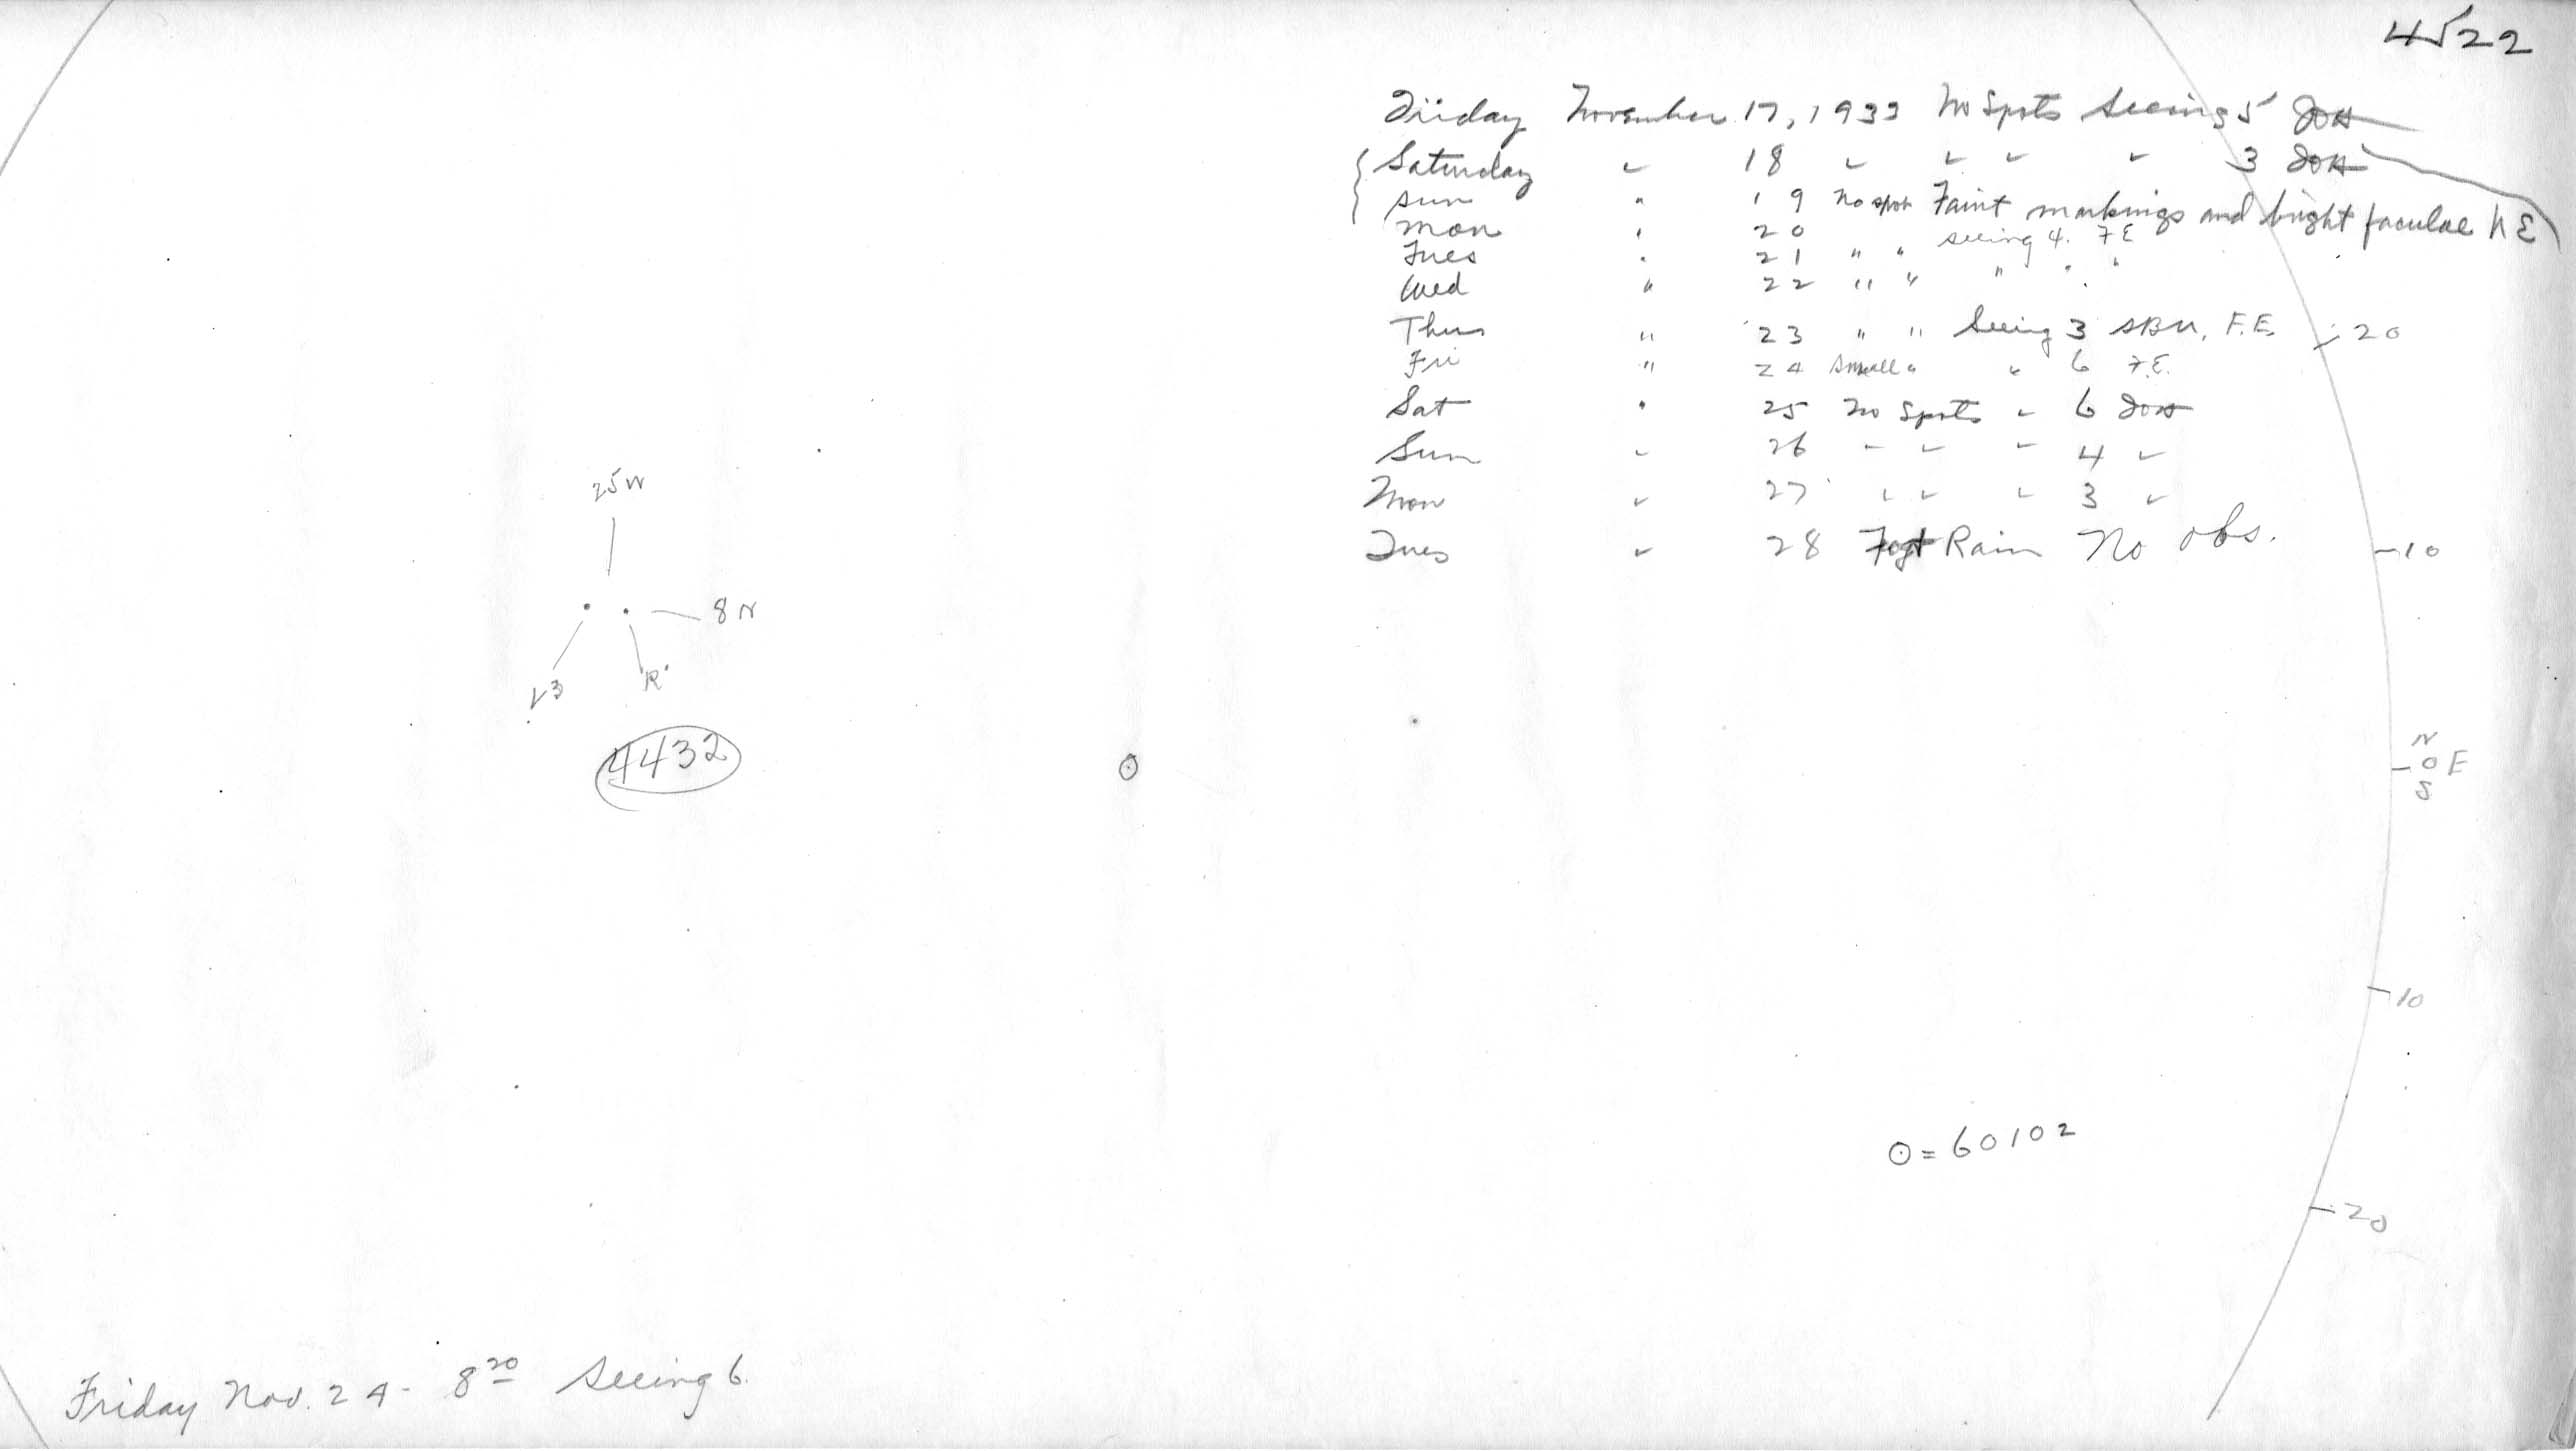 4522
Friday November 17, 1933 No Spots Seeing 5
Saturday " 18 " " " " 3
Sun " 19 No spots Faint markings and bright faculae NE
Mon " 20 seeing 4. FE
Tues " 21 " " " " "
Wed " 22 " "
Thurs " 23 " " Seeing 3 F.E. - 20
Fri " 24 Small " " 6 F.E.
Sat " 25 No Spots " 6
Sun " 26 " " " 4 "
Mon " 27 " " " 3 "
Tues " 28 Rain No obs. -10
25N
8N
V3
R
4432
N
-0 E
S
-10
⊙ = 60102
-20
Friday Nov. 24 - 8 20 Seeing 6.